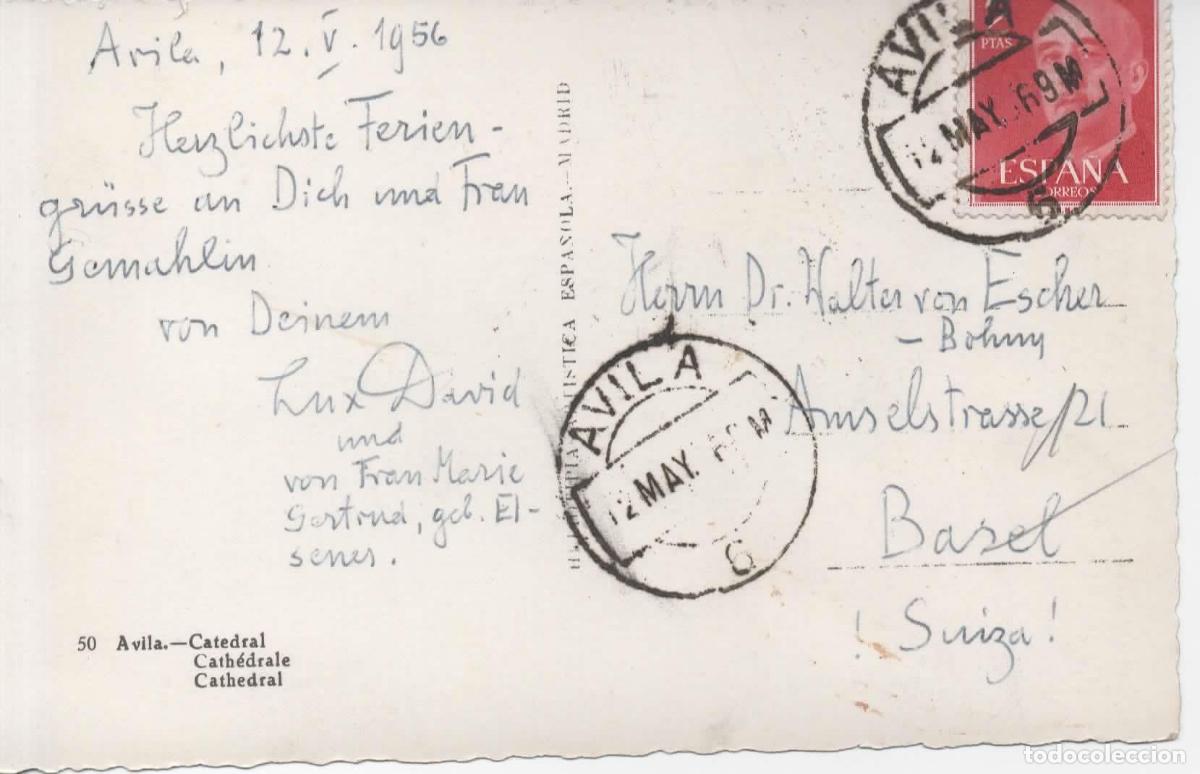 Avila, 12. V. 1956
Herzlichste Ferien-
grüsse an Dich und Frau
Gemahlin
von Deinem
Lux David
und
von Frau Marie
Gertrud, geb. El-
senes.
50 Avila.—Catedral
Cathédrale
Cathedral
ESPAÑOLA.—MADRID
PTAS
ESPAÑA
CORREOS
AVILA
12 MAY. 56 9M
6
Herrn Dr. Walter von Escher
- Bohny
Amselstrasse 21
Basel
! Suiza !
AVILA
12 MAY.
6
todocoleccion